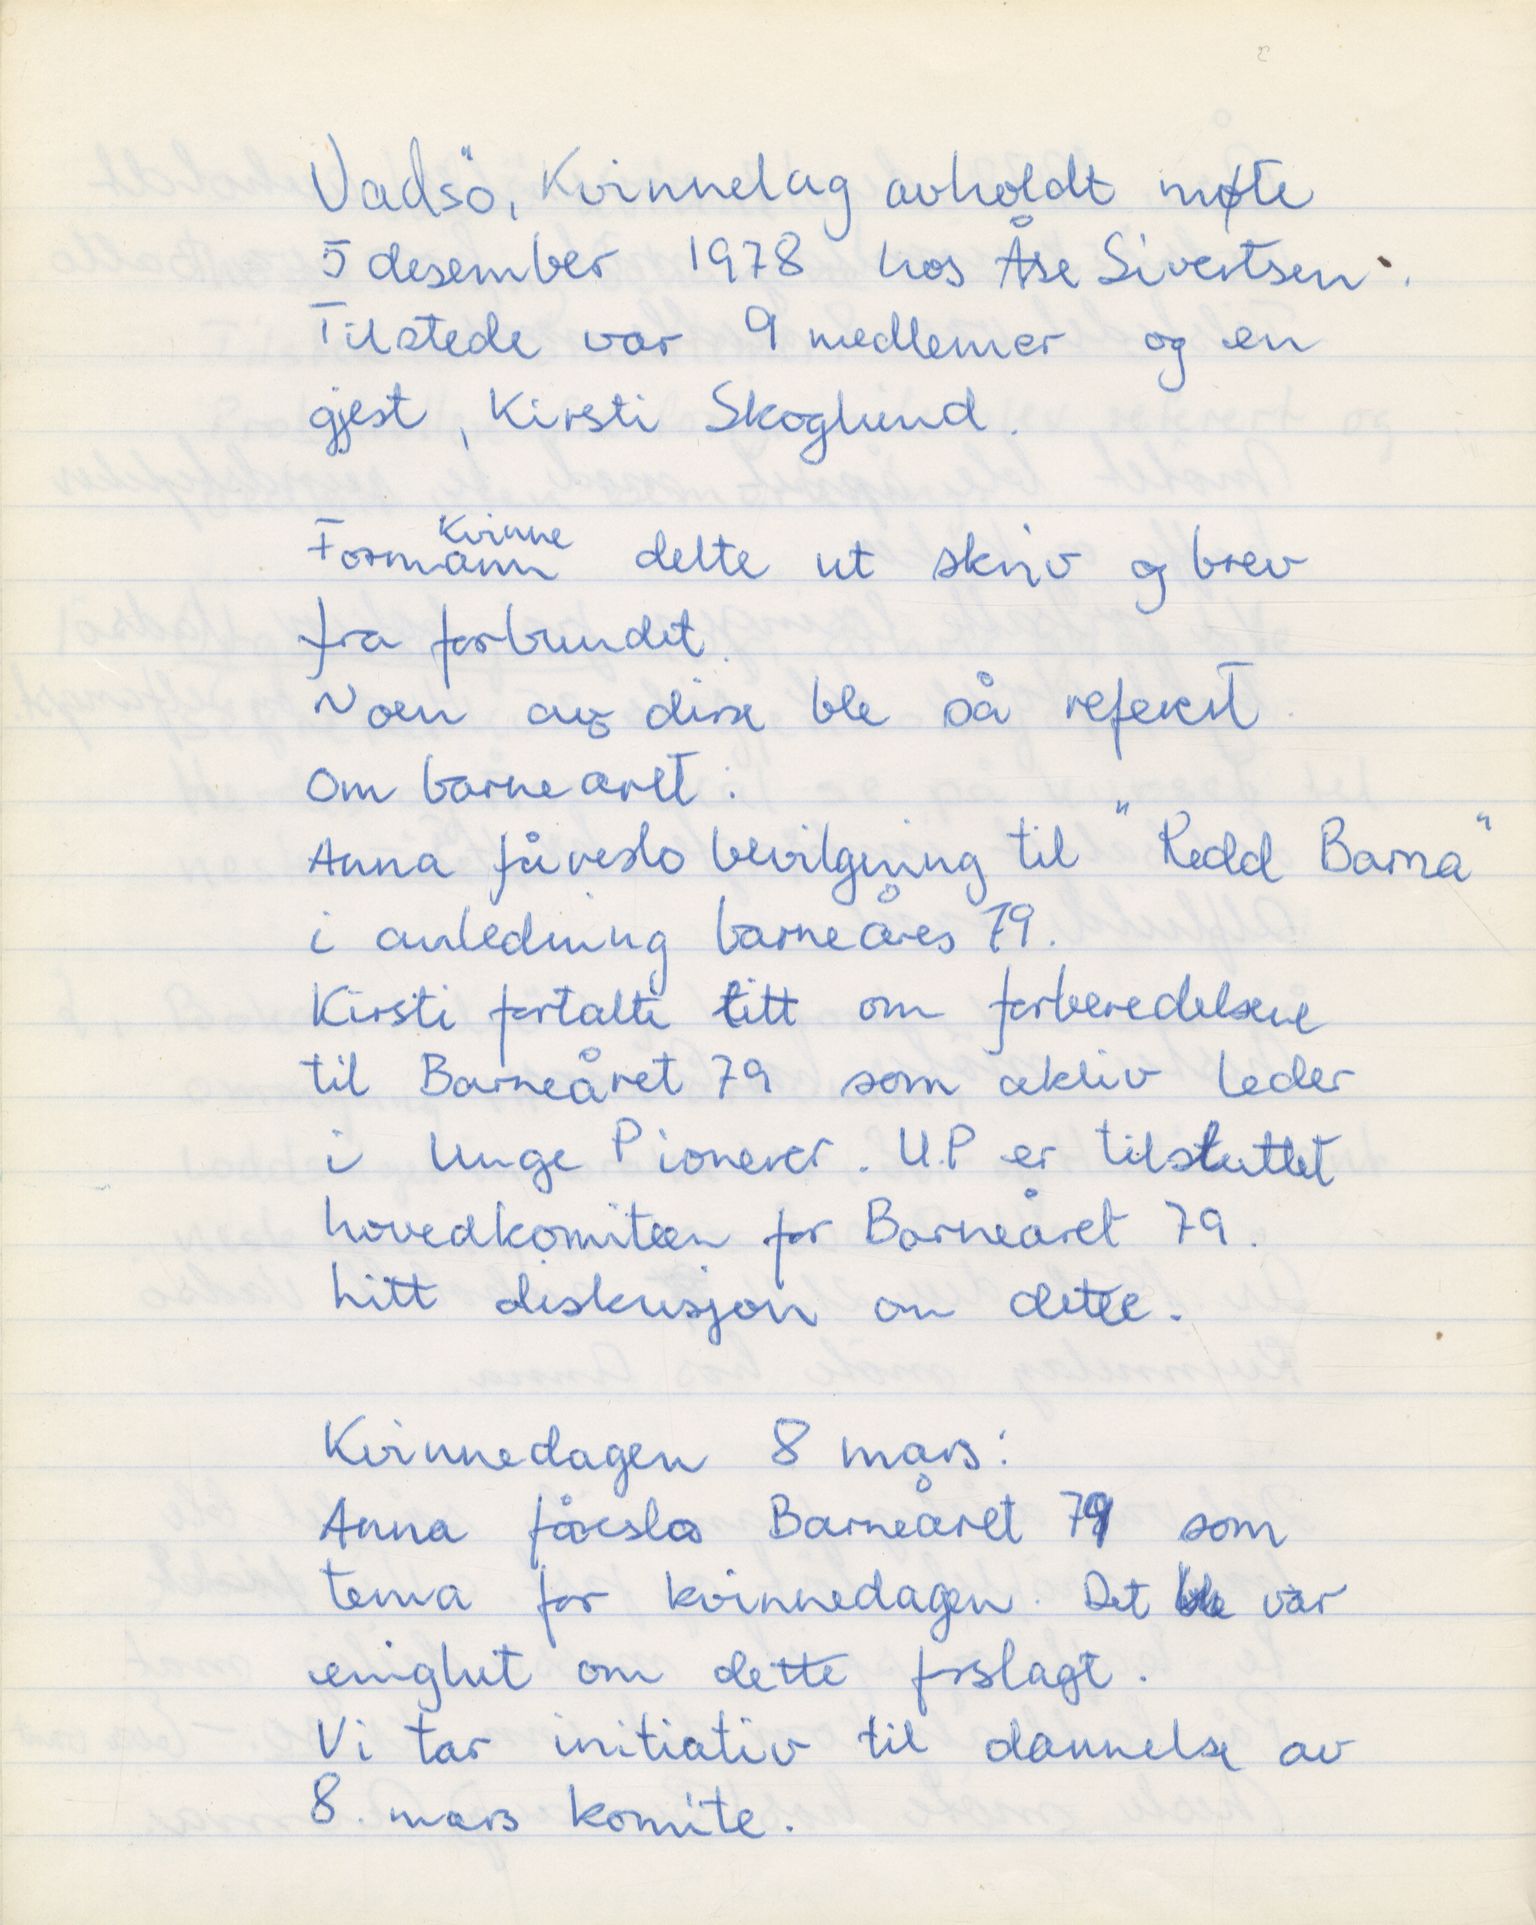 Vadsö, Kvinnelag avholdt møte
5 desember 1978 hos Åse Sivertsen.
Tilstede var 9 medlemer og en
gjest, Kirsti Skoglund.
Kvinne
Formann delte ut skriv og brev
fra forbundet.
Noen av disse ble så referert
om barnearet:
Anna fåreslo bevilgning til "Redd Barna"
i anledning barneåres 79.
Kirsti fortalte litt om forberedelsene
til Barneåret 79 som aktiv leder
i Unge Pionerer. U.P er tilsluttet
hovedkomiteen for Barneåret 79.
Litt diskusjon om dette.
Kvinnedagen 8 mars:
Anna fåreslo Barneåret 79 som
tema for kvinnedagen. Det ble var
enighet om dette forslagt.
Vi tar initiativ til dannelse av
8. mars komite.